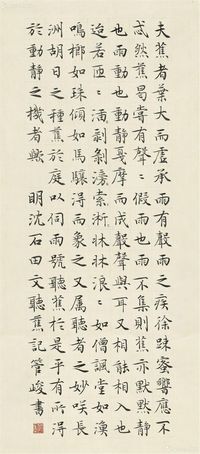 夫蕉者葉大而虛承雨有聲雨之疾徐疎密響應不
忒然蕉曷嘗有聲〻假雨也雨不集則蕉亦默默靜
也雨動也動靜戛摩而成聲聲與耳又相能相入也
迨若匝〻剝剝滂索淅牀牀浪〻如僧諷堂如漁
鳴榔如珠傾如馬驤得而象之又屬聽者之妙長
洲胡日之種蕉於庭以伺雨號聽蕉於是乎有所得
於動靜之機者歟 明沈石田文聽蕉記 管峻書